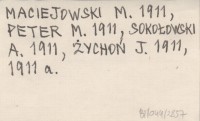 MACIEJOWSKI M. 1911,
PETER M. 1911, SOKOŁOWSKI
A. 1911, ŻYCHOŃ J. 1911,
1911 a.